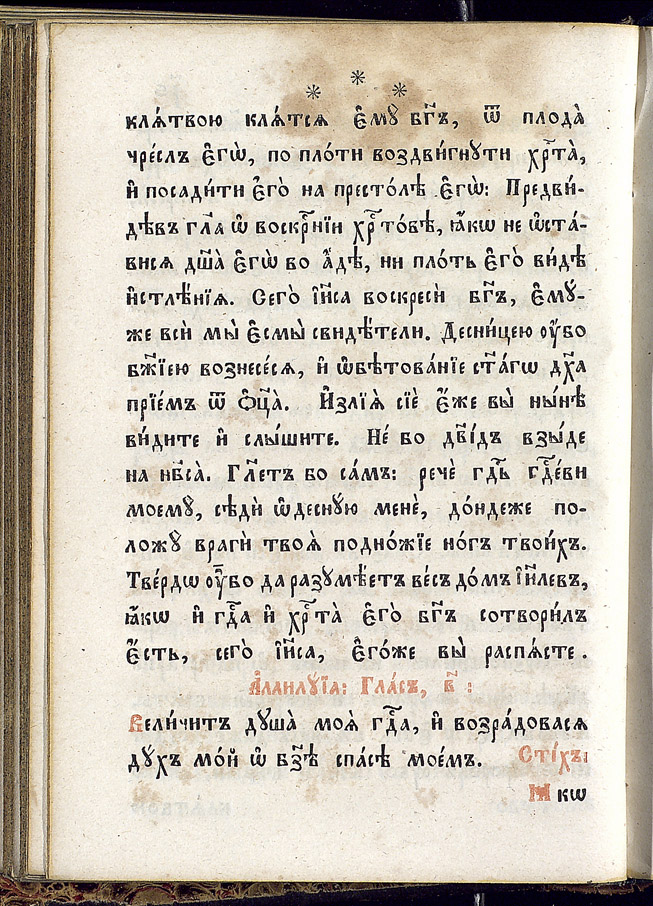 клѧ́твою клѧ́тсѧ є҆мꙋ̀ бг҃ъ, ѿ плода̀
чре́слъ є҆гѡ̀, по пло́ти воздви́гнꙋти хрⷭ҇та̀,
и҆ посади́ти є҆го̀ на престо́лѣ є҆гѡ̀: Предви́-
дѣвъ гл҃а ѡ҆ воскрⷭ҇нїи хрⷭ҇то́вѣ, ꙗ҆́кѡ не ѡ҆ста́-
висѧ дш҃а̀ є҆гѡ̀ во а҆́дѣ, ни пло́ть є҆го̀ ви́дѣ
и҆стлѣ́нїѧ. Сего̀ і҆и҃са воскресѝ бг҃ъ, є҆мꙋ́-
же всѝ мы̀ є҆смы̀ свидѣ́тели. Десни́цею ᲂу҆̀бо
бж҃їею вознесе́сѧ, и҆ ѡ҆бѣтова́нїе ст҃а́гѡ дх҃а
прїе́мъ ѿ ѻ҆ц҃а̀. И҆злїѧ̀ сїѐ є҆́же вы̀ ны́нѣ
ви́дите и҆ слы́шите. Не́ бо дв҃дъ взы́де
на нб҃са̀. Гл҃етъ бо са́мъ: речѐ гдⷭ҇ь гдⷭ҇еви
моемꙋ̀, сѣдѝ ѡ҆деснꙋ́ю менѐ, до́ндеже по-
ложꙋ̀ врагѝ твоѧ̀ подно́жїе но́гъ твои́хъ.
Тве́рдѡ ᲂу҆̀бо да разꙋмѣ́етъ ве́сь до́мъ і҆и҃левъ,
ꙗ҆́кѡ и҆ гдⷭ҇а и҆ хрⷭ҇та̀ є҆го̀ бг҃ъ сотвори́лъ
є҆́сть, сего̀ і҆и҃са, є҆го́же вы̀ распѧ́сте.
А҆лаилꙋ́їа: Гла́съ, в҃:
Вели́читъ дꙋша̀ моѧ̀ гдⷭ҇а, и҆ возра́довасѧ
дꙋ́хъ мо́й ѡ҆ бз҃ѣ спа́сѣ мое́мъ. Сті́хъ:
Ꙗкѡ